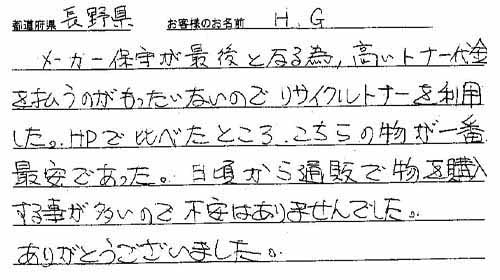 都道府県 長野県 お客様のお名前 H.G
メーカー保守が最後となる為,高いトナー代金
を払うのがもったいないのでリサイクルトナーを利用
した。HPで比べたところ、こちらの物が一番
最安であった。日頃から通販で物を購入
する事が多いので不安はありませんでした。
ありがとうございました。